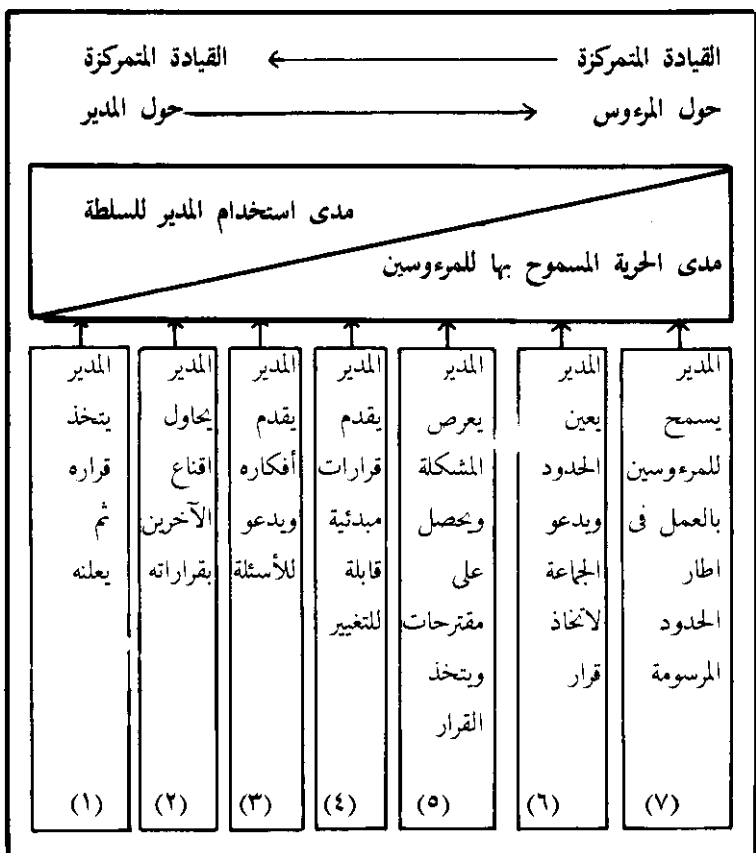 القيادة المتمركزة القيادة المتمركزة
حول المرءوس حول المدير
مدى استخدام المدير للسلطة
مدى الحرية المسموح بها للمرءوسين
المدير
يسمح
للمرءوسين
بالعمل فى
اطار
الحدود
المرسومة
(٧)
المدير
يعين
الحدود
ويدعو
الجماعة
لاتخاذ
قرار
(٦)
المدير
يعرض
المشكلة
ويحصل
على
مقترحات
ويتخذ
القرار
(٥)
المدير
يقدم
قرارات
مبدئية
قابلة
للتغيير
(٤)
المدير
يقدم
أفكاره
ويدعو
للأسئلة
(٣)
المدير
يحاول
اقناع
الآخرين
بقراراته
(٢)
المدير
يتخذ
قراره
ثم
يعلنه
(١)